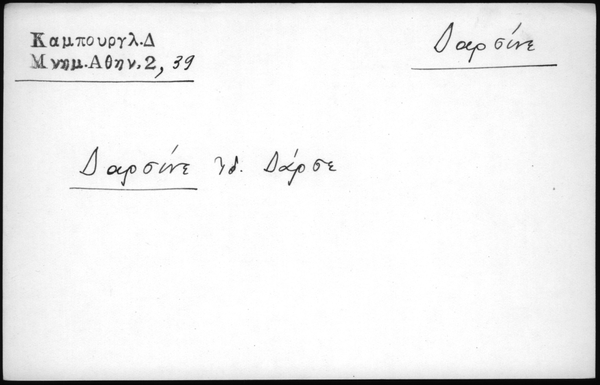 Καμπουργλ.Δ
Μνημ.Αθην.2, 39
Δαρσίνε
Δαρσίνε ἰδ. Δάρσε